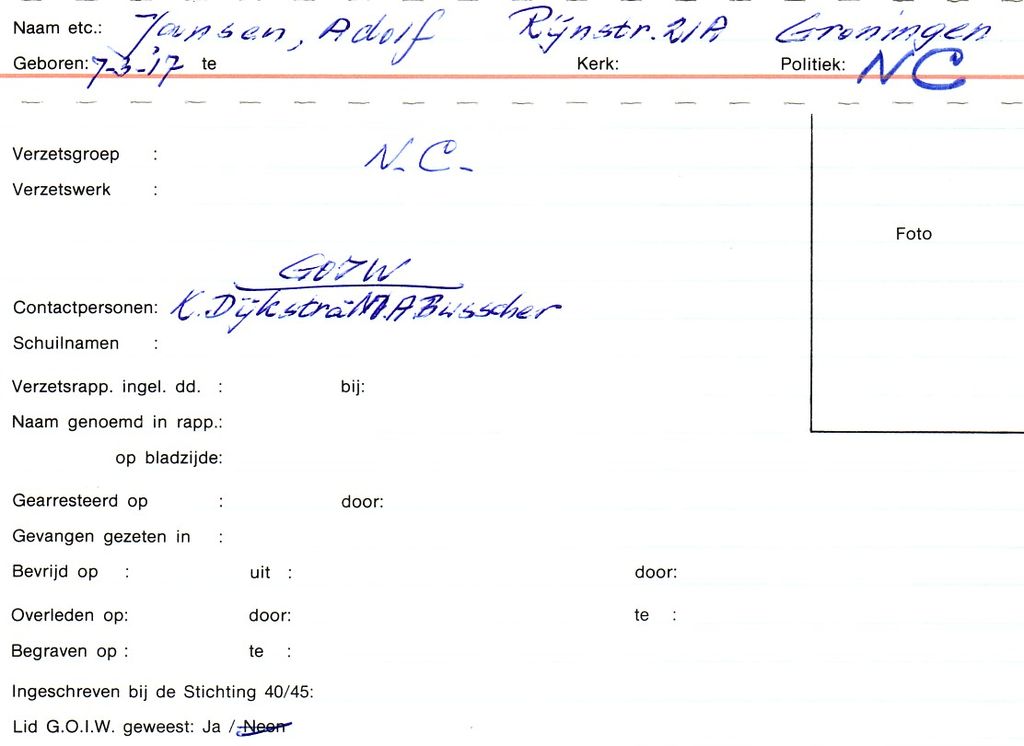 Naam etc.: Jansen, Adolf Rijnstr. 21A Groningen
Geboren: 7-3-'17 te Kerk: Politiek: NC
Verzetsgroep : N.C.
Verzetswerk :
Foto
GOIW
Contactpersonen: K. Dijkstra A Busscher
Schuilnamen :
Verzetsrapp. ingel. dd. : bij:
Naam genoemd in rapp.:
op bladzijde:
Gearresteerd op : door:
Gevangen gezeten in :
Bevrijd op : uit : door:
Overleden op: door: te :
Begraven op : te :
Ingeschreven bij de Stichting 40/45:
Lid G.O.I.W. geweest: Ja / Neen